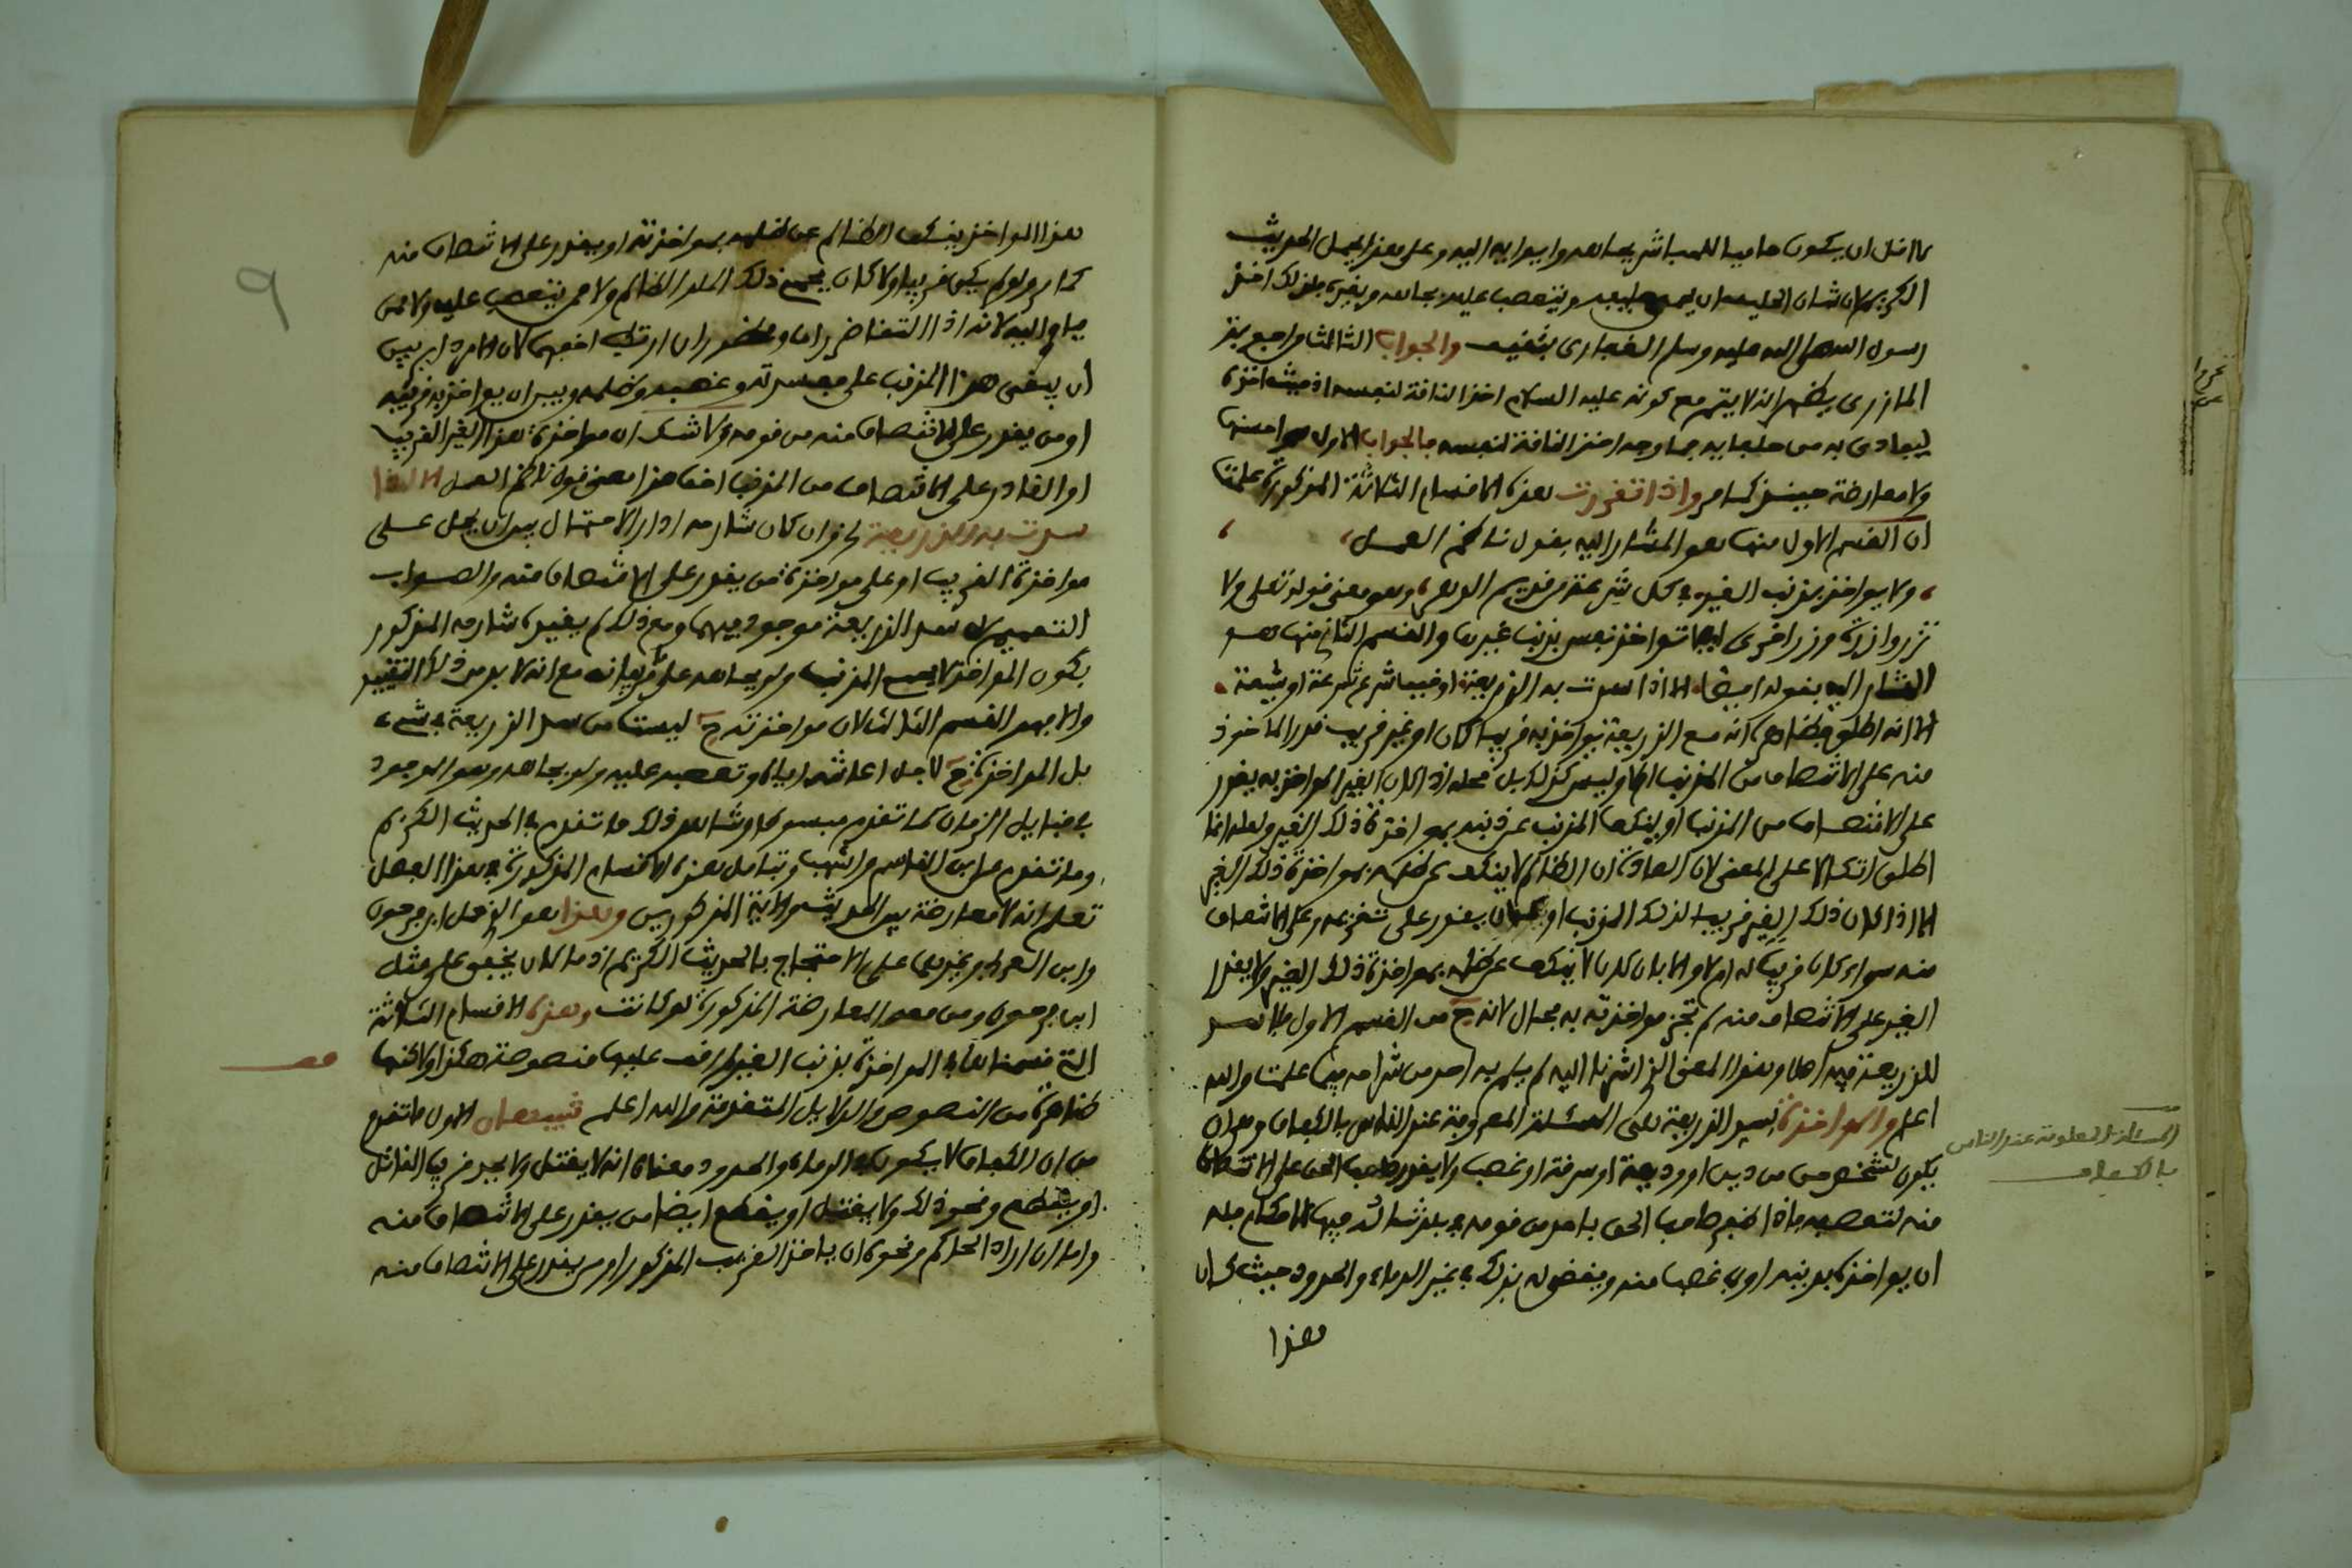 ما اقل ان يكون حاميا للمباشر بجاهه وايوايه اليه وعلى هذا يحمل الحديث
الكريم لان شان الحليف ان يحمي حليفه ويتعصب عليه بجاهه وبغيره فلذلك اخذ
رسول الله صلى الله عليه وسلم الغفاري بثقيف والجواب الثالث
المازري يظهر انه لا يتم مع كونه عليه السلام اخذ الناقة لنفسه اذ حيث اخذه
ليفادي به من حلفايه فما وجه اخذ الناقة لنفسه فالجواب الاول هو احسنها
ولا معارضة حينئذ كما مر واذا تقررت هذه الاقسام الثلاثة المذكورة علمت
ان القسم الاول منها هو المشار اليه بقول ناظم العمل
ولا يواخذ بذنب الغير في كل شرع من قديم الدهر وهو معنى قوله تعلى ولا
تزر وازرة وزر اخرى اي لا تواخذ نفس بذنب غيرها والقسم الثاني منها هو
المشار اليه بقوله ايضا الا اذا سدت به الذريعة او خيف شرع شرعة او شيعة
الا انه اطلق فظاهره انه مع الذريعة يواخذ به قريبا كان او غير قريب قدر الماخوذ
منه على الانتصاف من المذنب ام لا وليس كذلك بل محله اذا كان الغير المواخذ به يقدر
على الانتصاف من المذنب او ينكف المذنب عن ذنبه بمواخذة ذلك الغير ولعله انما
اطلق اتكالا على المعنى لان العادة ان الظالم لا ينكف عن ظلمه بمواخذة ذلك الغير
الا اذا كان ذلك الغير قريبا لذلك المذنب او كان يقدر على وعلى الانتصاف
منه سواء كان قريبا له ام لا والا بان كان لا ينكف عن ظلمه بمواخذة ذلك الغير ولا يقدر
الغير على الانتصاف منه لم تجز مواخذته به بحال لانه ح من القسم الاول اذ لا سد
للذريعة فيه اصلا وهذا المعنى الذي اشرنا اليه لم يلم به احد من شراحه فيما علمت والله
اعلم والمواخذة لسد الذريعة هي المسئلة المعروفة عند الناس بالكفاف وهو ان
يكون لشخص حق من دين او وديعة او سرقة او غصب ولا يقدر صاحب الحق على الانتصاف
منه لتعصبه فاذا ظفر صاحب الحق باحد من قومه في بلد تناله فيها الاحكام فله
ان يواخذه بدينه او بما غصب منه ويقضى له بذلك في غير الدماء والحدود حيث كان
هذا
المسئلة المعلومة عند الناس
بالكفاف
هذا المواخذ ينكف الظالم عن ظلمه بمواخذته او يقدر على الانتصاف منه
كما مر ولو لم يكن قريبا ولا كان يحمي ذلك الظالم ولا ممن يتعصب عليه ولا ممن
ياوى اليه لانه اذا التقا ضرران ومحظوران ارتكب اخفهما لان الامر دار بين
ان يبقى هذا المذنب على مفسدته وغصبه وظلمه وبين ان يواخذ به قريبه
او من يقدر على الانتصاف منه من قومه ولا شك ان مواخذة هذا الغير القريب
او القادر على الانتصاف من المذنب اخف هذا معنى قول ناظم العمل الا اذا
سدت به الذريعة لخ وان كان شارحه ادار الاحتمال بين ان يحمل على
مواخذة القريب او على مواخذة من يقدر على الانتصاف منه والصواب
التعميم لان سد الذريعة موجود فيهما ومع ذلك لم يقيده شارحه المذكور
بكون المواخذ لا يحمي المذنب ولو بجاهه مع انه لا بد من ذلك التقييد
والا فهو القسم الثالث لان مواخذته ح ليست من سد الذريعة في شيء
بل المواخذة ح لاجل اعانته اياه وتعصبه عليه ولو بجاهه وهو الموجود
في قبايل الزمان كما تقدم مبسوطا وشاهد ذلك ما تقدم في الحديث الكريم
وما تقدم عن ابن القاسم واشهب وتامل هذه الاقسام المذكورة في هذا الفصل
تعلم انه لا معارضة بين الحديث والاية المذكورين وهذا هو الذي حمل ابن فرحون
وابن الفرس وغيرهما على الاحتجاج بالحديث الكريم اذ ما كان يخفى على مثل
ابن فرحون ومن معه المعارضة المذكورة لو كانت وهذه الاقسام الثلاثة
التي قسمنا اليها المواخذة بذنب الغير لم اقف عليها منصوصة هكذا ولاكنها
ظاهرة من النصوص والدلايل المتقدمة والله اعلم تنبيهان الاول ما تقدم
من ان الكفاف لا يكون في الدماء والحدود معناه انه لا يقتل ولا يحد قريب القاتل
او يقطع ونحو ذلك ولا يقتل او يقطع ايضا من يقدر على الانتصاف منه
واما ان اراد الحاكم ونحوه ان ياخذ القريب المذكور او من يقدر على الانتصاف منه
٩